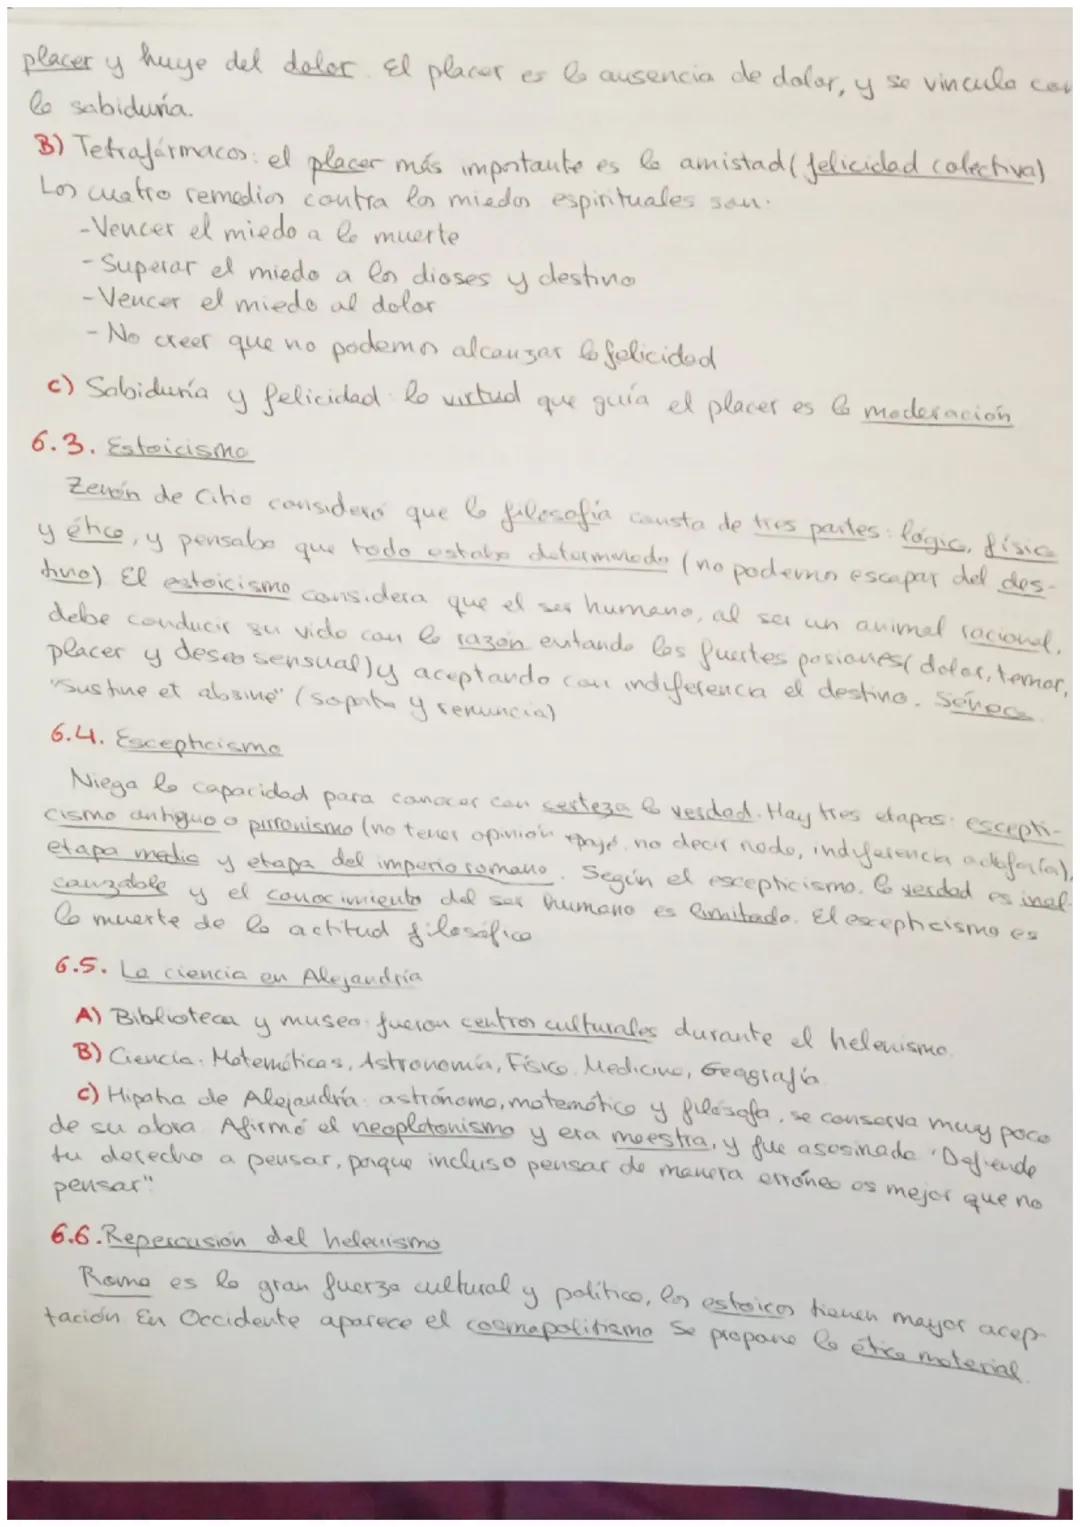 placer y huye del dolor. El placer es la ausencia de dolor, y se vincula con
la sabiduría.
B) Tetrafármacos: el placer más importante es la amistad (felicidad colectiva)
Los cuatro remedios contra los miedos espirituales son:
- Vencer el miedo a la muerte
- Superar el miedo a los dioses y destino
- Vencer el miedo al dolor
- No creer que no podemos alcanzar la felicidad
C) Sabiduría y felicidad: la virtud que guía el placer es la moderación
6.3. Estoicismo
Zenón de Citio consideró que la filosofía consta de tres partes: lógica, física
y ética, y pensaba que todo estaba determinado (no podemos escapar del des-
tino) El estoicismo considera que el ser humano, al ser un animal racional,
debe conducir su vida con la razón evitando las fuertes pasiones (dolor, temor,
placer y deseo sensual) y aceptando con indiferencia el destino. Séneca
"Sustine et absine" (soporta y renuncia)
6.4. Escepticismo
Niega la capacidad para conocer con certeza la verdad. Hay tres etapas: escepti-
cismo antiguo o pirronismo (no tener opinión, no decir nada, indiferencia adafaría),
etapa media y etapa del imperio romano. Según el escepticismo, la verdad es inal-
canzable y el conocimiento del ser humano es limitado. El escepticismo es
la muerte de la actitud filosófica
6.5. La ciencia en Alejandría
A) Biblioteca y museo: fueron centros culturales durante el helenismo.
B) Ciencia: Matemáticas, Astronomía, Física, Medicina, Geografía.
C) Hipatia de Alejandría: astrónoma, matemática y filósofa, se conserva muy poco
de su obra. Afirmó el neoplatonismo y era maestra, y fue asesinada "Defiende
tu derecho a pensar, porque incluso pensar de manera errónea es mejor que no
pensar"
6.6. Repercusión del helenismo
Roma es la gran fuerza cultural y política, los estoicos tienen mayor acep-
tación En Occidente aparece el cosmopolitismo Se propone la ética material.